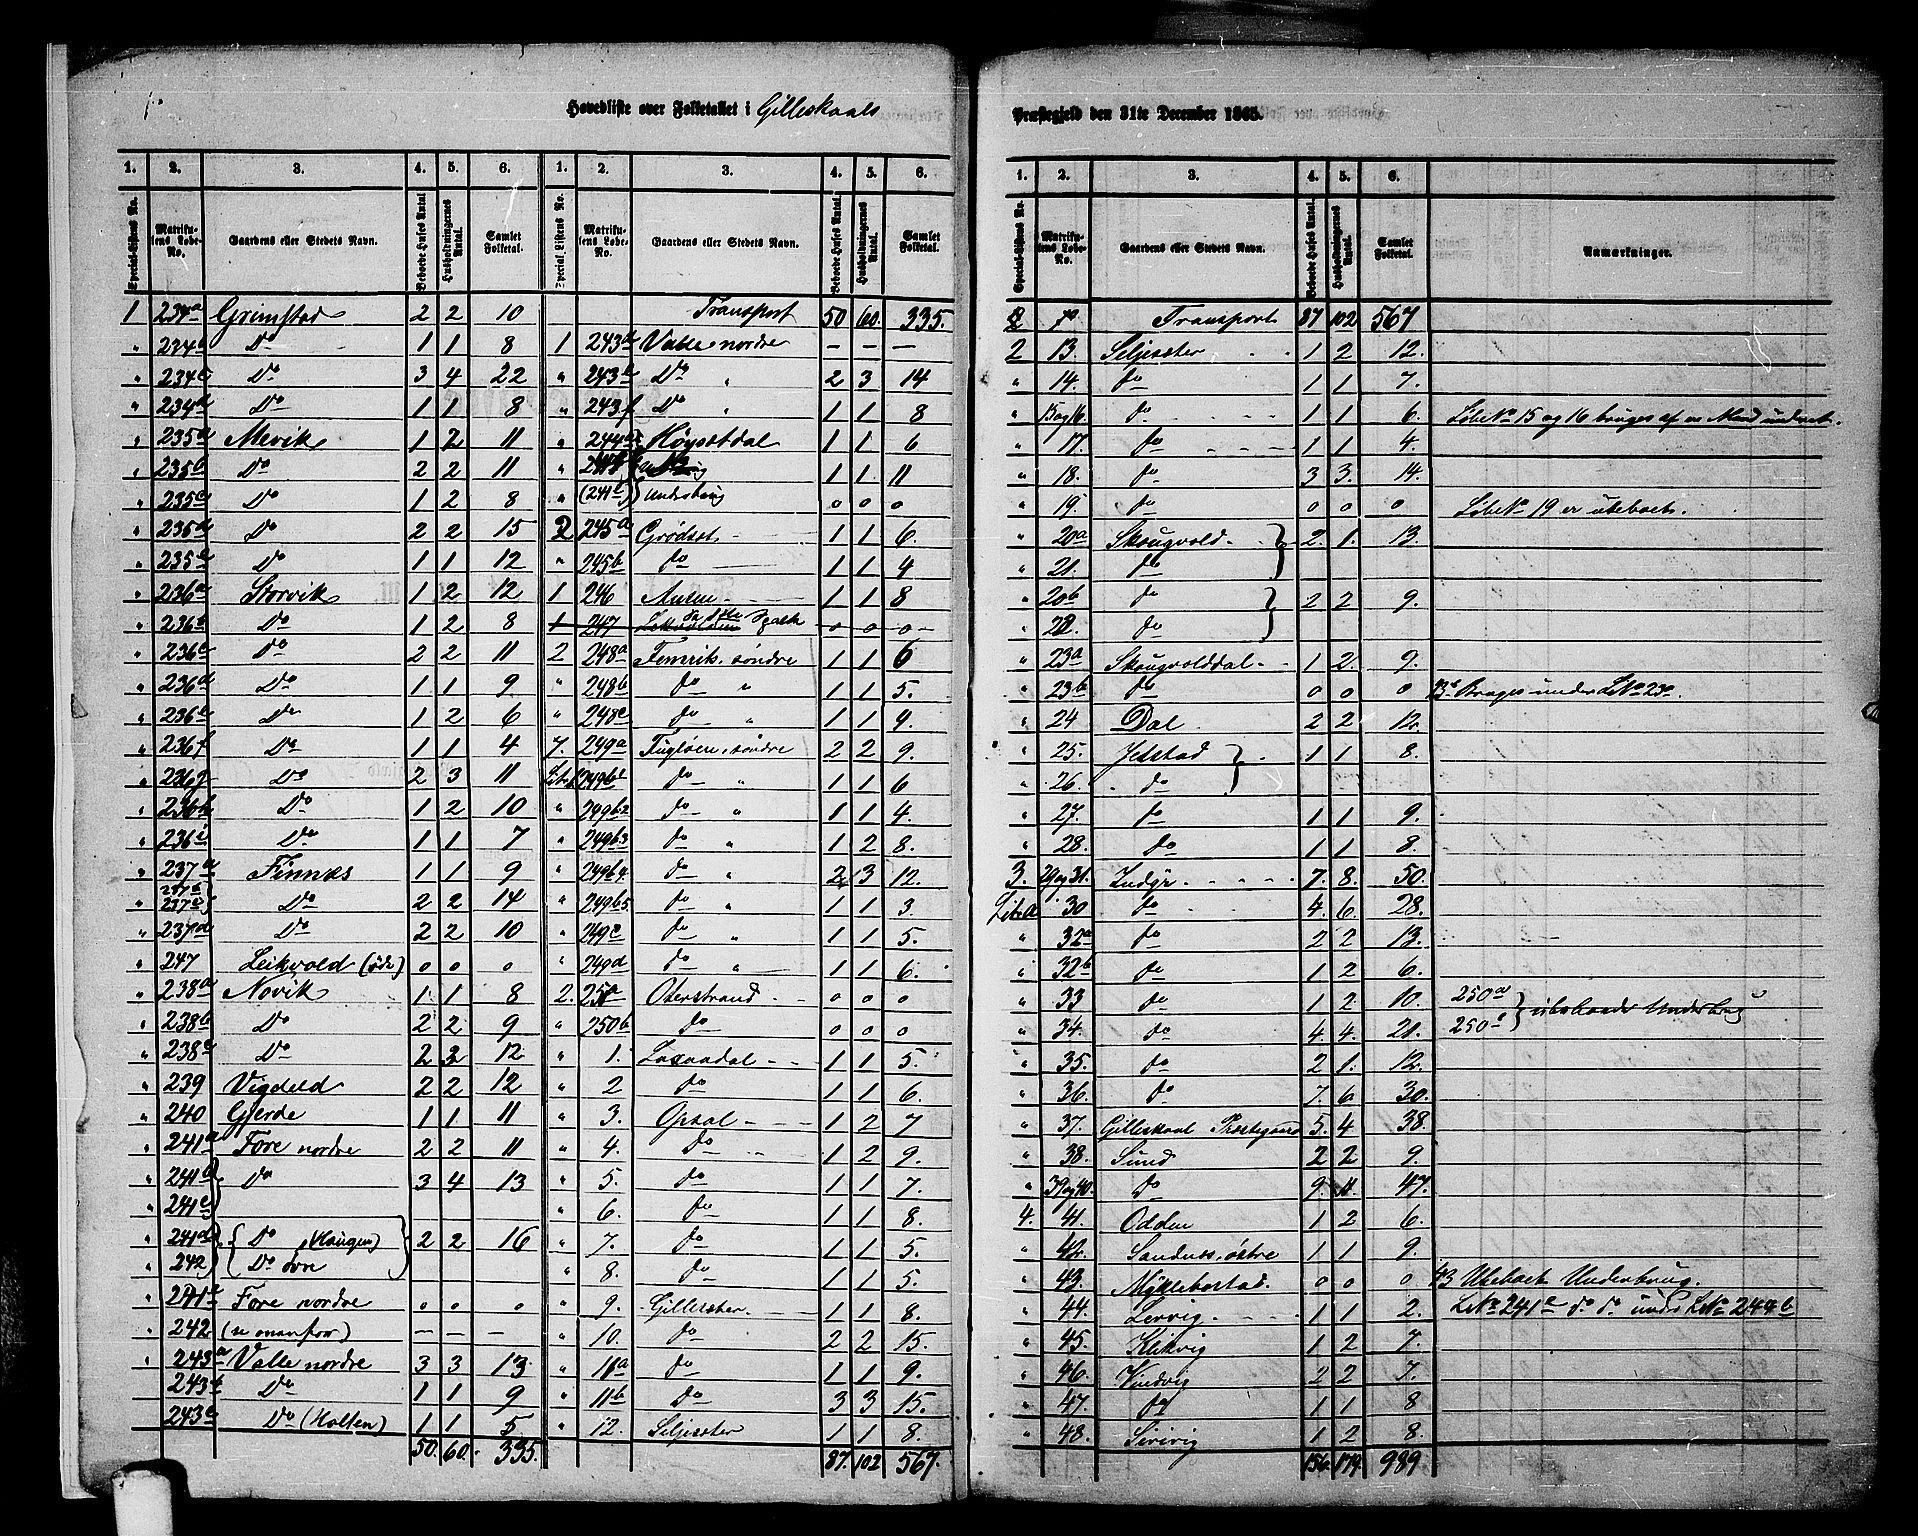 Hovedliste over Folketallet i Gilleskaals Præstegjeld den 31te December 1865.
1. 2. 3. 4. 5. 6. 1. 2. 3. 4. 5. 6.
Special-Listens No. Matrikulens Løbe-No. Gaardens eller Stedets Navn. Beboede Huses Antal Husholdningernes Antal. Samlet Folketal. Special Listens No. Matrikulens Løbe-No. Gaardens eller Stedets Navn. Beboede Huses Antal. Husholdningernes Antal. Samlet Folketal.
1 234a Grimstad 2 2 10 Transport 50 60. 335.
" 234b Do 1 1 8 1 243d Valle nordre — — —
" 234c Do 3 4 22 " 243e Do " 2 3 14
" 234d Do 1 1 8 " 243f Do " 1 1 8
" 235a Mevik 1 2 11 " 244a Høgsetdal 1 1 6
" 235b Do 2 2 11 " 1 1 11
" 235c Do 1 2 8 " (241e) Underbrug 0 0 0
" 235d Do 2 2 15 2 245a Grødset 1 1 6.
" 235e Do 1 1 12 " 245b do 1 1 4
" 236a Storvik 1 2 12 1 246 Aasen 1 1 8
" 236b Do 1 2 8 1 247 Leikvolden 0 0 0
" 236c Do 2 2 11 2 248a Femris, søndre 1 1 6
" 236d Do 1 1 9 " 248b do " 1 1 5.
" 236e Do 1 2 6 " 248c do " 1 1 4.
" 236f Do 1 1 4 7. 249a Fugløen, søndre 2 2 9.
" 236g Do 2 3 11 do " 1 1 6
" 236h Do 1 2 10 " 249b2 do " 1 1 4.
" 236i Do 1 1 7 " 249b3 do " 1 2 8.
" 237a Finnæs 1 1 9 " 249b4. do " 2 3 12.
" 237b 237c Do 2 2 14 " 249b5. do " 1 1 3.
" 237d Do 2 2 10 " 249c do " 1 1 5.
" 247 Leikvold (øde) 0 0 0 " 249d do " 1 1 6.
" 238a Novik 1 1 8 2. 250a Oterstrand 0 0 0
" 238b Do 2 2 9 " 250b do 0 0 0
" 238c Do 2 2 12 " 1. Laxaadal 1 1 5.
" 239 Vigdeld 2 2 12 " 2 do 1 1 6.
" 240 Gjerde 1 1 11 " 3. Opsal 1 2 7
" 241a Fore nordre 2 2 11 " 4. Do 1 2 9.
" 241b Do 3 4 13 " 5. do 1 1 7.
241c " 6. do 1 1 8.
" 241d Do (Haugen) 2 2 16 " 7. do 1 1 5.
" 242 Do øvre " 8. do 1 1 5.
" 241e Fore nordre 0 0 0 " 9. Gillesæter 1 1 8.
" 242 (se ovenfor) — — — " 10. do 2 2 15.
" 243a Valle nordre 3 3 13 " 11a do 1 1 9.
" 243b Do 1 1 9 " 11b Do 3 3 15.
243c Do (Holten) 1 1 5 " 12. Seljesæter 1 1 8.
50. 60. 335. 87. 102 567.
1. 2. 3. 4. 5. 6.
Special-Listens No. Matrikulens Løbe-No. Gaardens eller Stedets Navn. Beboede Huses Antal. Husholdningernes Antal. Samlet Folketal. Anmærkninger.
Transport 87 102 567
2 13. Seljesæter 1 2 12.
" 14. do 1 1 7.
" 15 og 16. do 1 1 6. Løbe No 15 og 16 bruges af en Mand under et.
" 17. do 1 1 4.
" 18. do 3 3. 14.
" 19. do 0 0 0 Løbe No 19 er ubeboet.
" 20a Skougvold 2. 1. 13.
" 21. do
" 20b do 2 2 9.
" 22. do
" 23a Skougvolddal 1 2. 9.
" 23b do 0 0 0 Bruges under L No 23a.
" 24 Dal 2 2 12.
" 25. Jelstad 1 1 8.
" 26. do
" 27. do 1 1 9.
" 28. do 1 1 8.
3. 29 og 31. Indyr 7. 8. 50.
Litr. a 30 do 4. 6. 28.
" 32a do 2 2 13.
" 32b do 1 2 6.
" 33 do 1 2 10. 250a
" 34. do 4. 4. 21. 250b ubeboede Underbrug
" 35. do 2 1. 12.
" 36. do 7. 6 30.
" 37. Gilleskaal Præstegaard 5. 4 38.
" 38. Sund 2 2 9.
" 39 og 40. Do 9. 11. 47.
4. 41. Odden 1 2 6.
" 42. Sandnes, østre 1 1 9.
" 43. Myklebostad. 0 0 0 43 Ubeboet Underbrug.
" 44. Lervig 1 1 2. L No 241e do do under L No 244b
" 45. Klikvig 1 2 7.
" 46. Vindvig 2 2 7.
" 47. do 1 1 8
" 48. Sirivig 1 2 8.
156. 179. 989